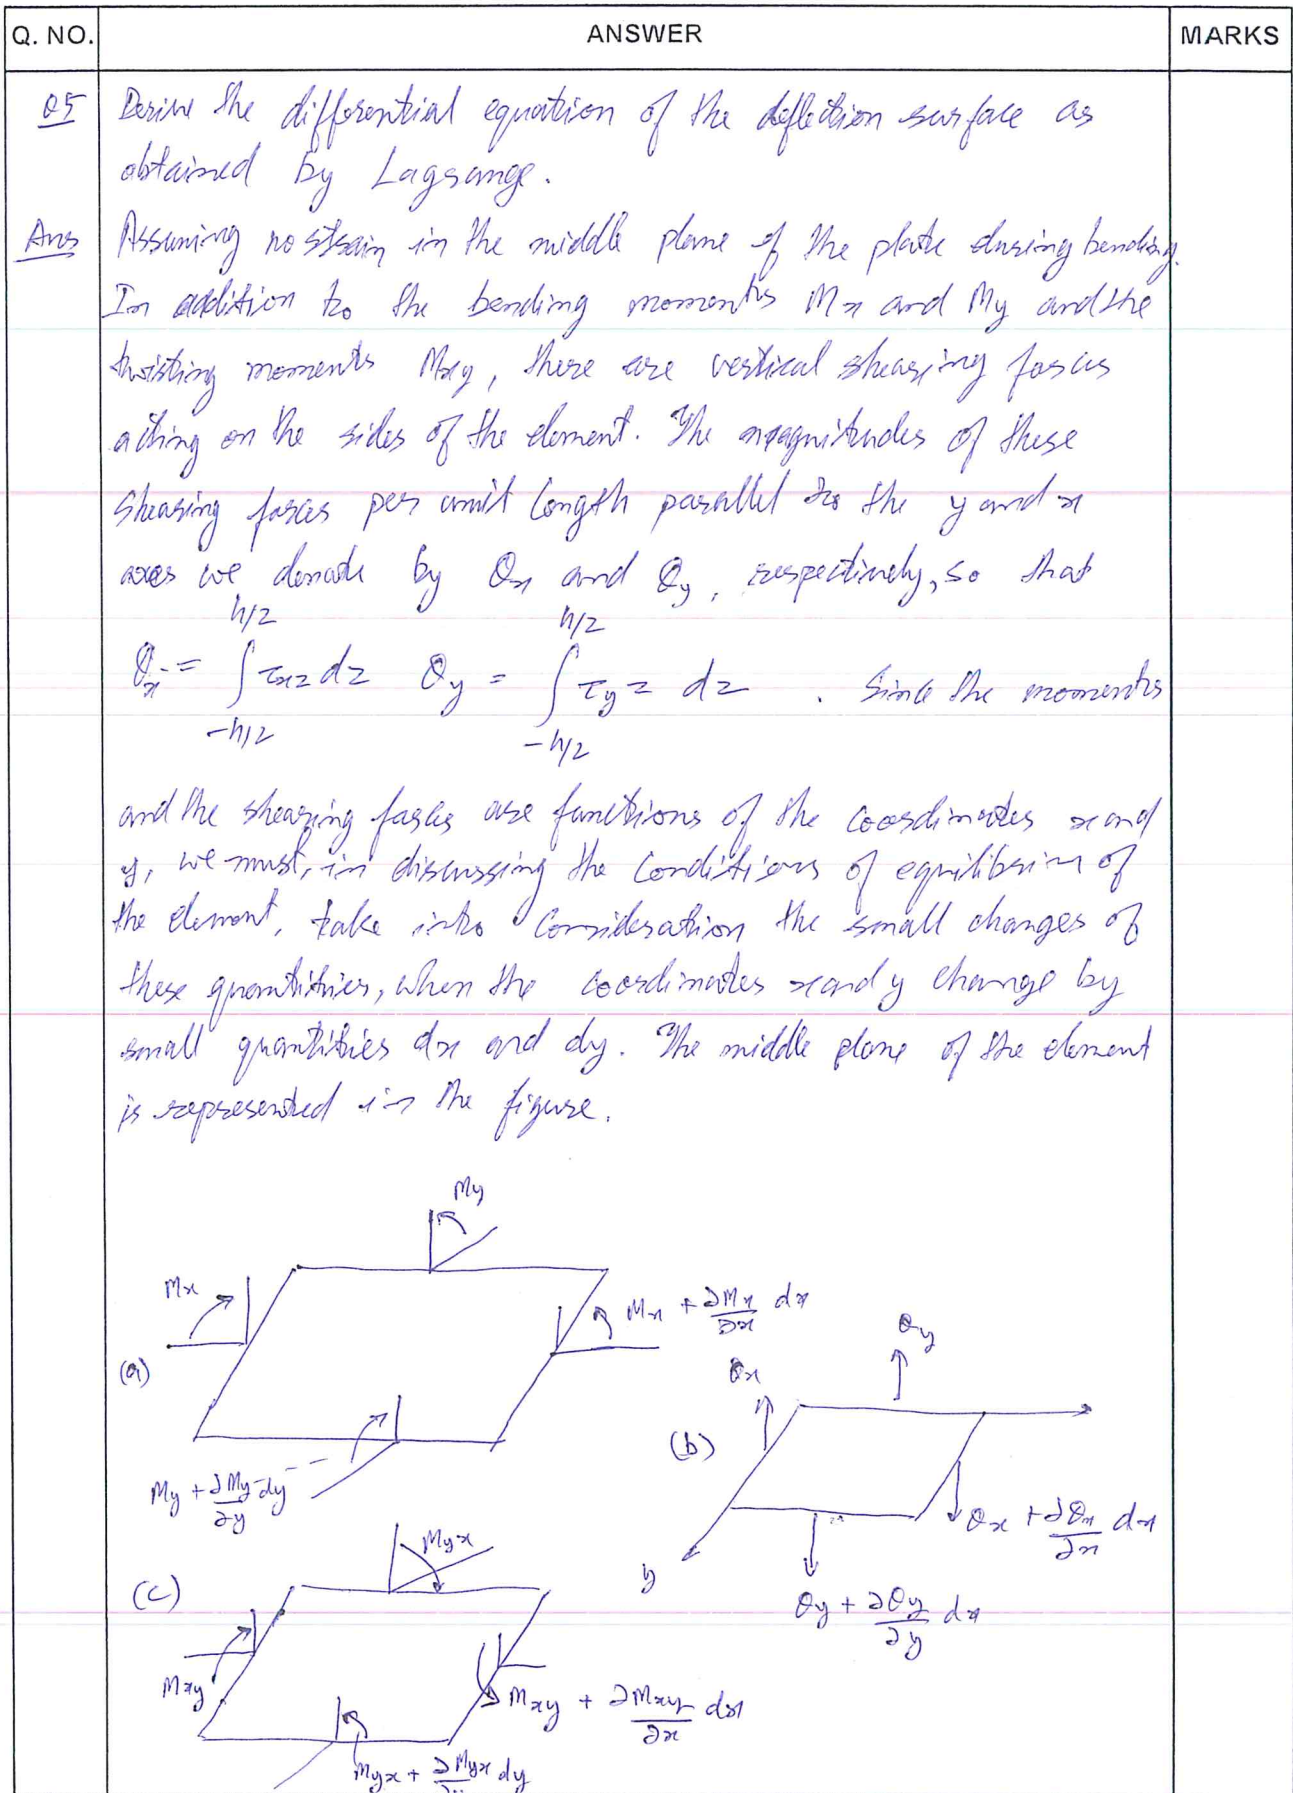 Q. NO. ANSWER MARKS
Q5 Derive the differential equation of the deflection surface as
obtained by Lagrange.
Ans Assuming no strain in the middle plane of the plate during bending.
In addition to the bending moments Mx and My and the
twisting moments Mxy, there are vertical shearing forces
acting on the sides of the element. The magnitudes of these
shearing forces per unit length parallel to the y and x
axes we denote by Qx and Qy, respectively, so that
Qx = ∫_{-h/2}^{h/2} τxz dz Qy = ∫_{-h/2}^{h/2} τyz dz . Since the moments
and the shearing forces are functions of the coordinates x and
y, we must, in discussing the conditions of equilibrium of
the element, take into consideration the small changes of
these quantities, when the coordinates x and y change by
small quantities dx and dy. The middle plane of the element
is represented in the figure.
My
Mx
Mx + ∂Mx/∂x dx
(a)
My + ∂My/∂y dy
Qy
Qx
(b)
Qx + ∂Qx/∂x dx
y
Qy + ∂Qy/∂y dx
(c)
Myx
Mxy
Mxy + ∂Mxy/∂x dx
Myx + ∂Myx/∂y dy